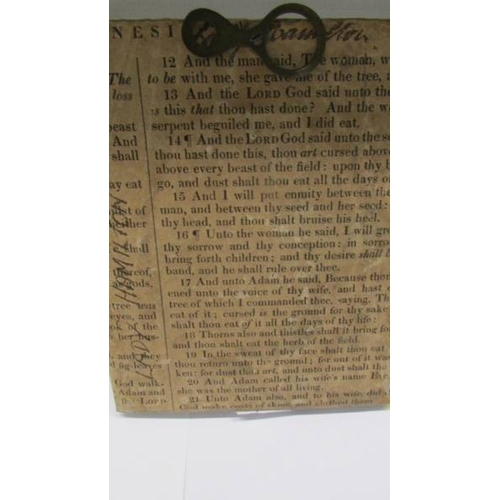 NESI
Hamilton
12 And the man said, The woman, w
to be with me, she gave me of the tree, a
13 And the LORD God said unto the
is this that thou hast done? And the w
serpent beguiled me, and I did eat.
14 ¶ And the LORD God said unto the se
thou hast done this, thou art cursed above
above every beast of the field: upon thy b
go, and dust shalt thou eat all the days o
15 And I will put enmity between the
man, and between thy seed and her seed:
thy head, and thou shalt bruise his heel.
16 ¶ Unto the woman he said, I will gre
thy sorrow and thy conception: in sorro
bring forth children; and thy desire shall b
band, and he shall rule over thee.
17 And unto Adam he said, Because thou
ened unto the voice of thy wife, and hast e
tree of which I commanded thee, saying, Th
eat of it; cursed is the ground for thy sake
shalt thou eat of it all the days of thy life:
18 Thorns also and thistles shall it bring fo
and thou shalt eat the herb of the field.
19 In the sweat of thy face shalt thou eat
thou return unto the ground; for out of it wa
ken: for dust thou art, and unto dust shalt tho
20 And Adam called his wife's name
she was the mother of all living.
21 Unto Adam also, and to his wife did
God make coats of skins, and clothed them
The
loss
beast
And
shall
ay eat
shall
thereof,
tree was
eyes, and
God walk-
Adam and
LORD
LADY HAMILTON